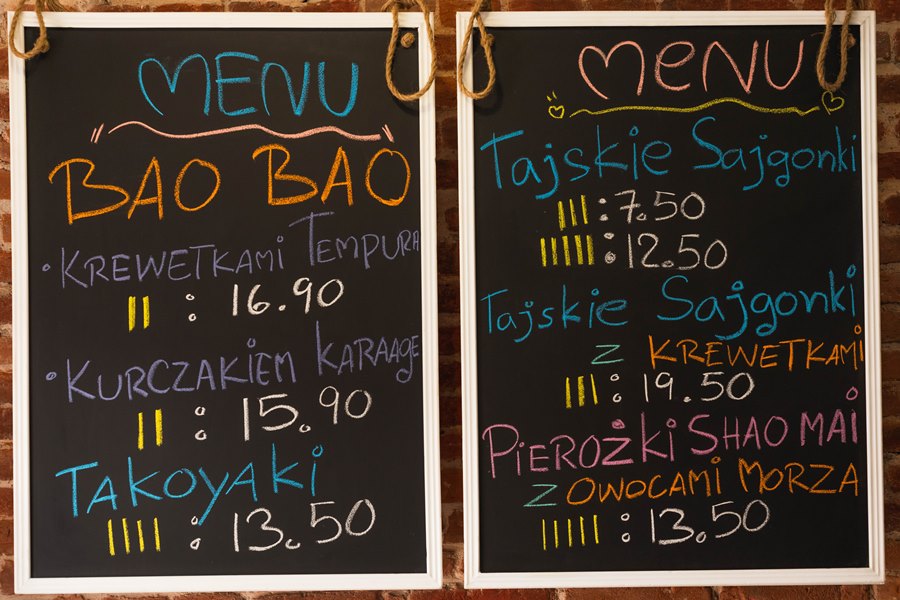 MENU
BAO BAO
• KREWETKAMI TEMPURA
|| : 16.90
• KURCZAKIEM KARAAGE
|| : 15.90
TAKOYAKI
|||| : 13.50
MENU
Tajskie Sajgonki
||| : 7.50
||||| : 12.50
Tajskie Sajgonki
z KREWETKAMI
||| : 19.50
PIEROŻKI SHAO MAI
z OWOCAMI MORZA
||||| : 13.50